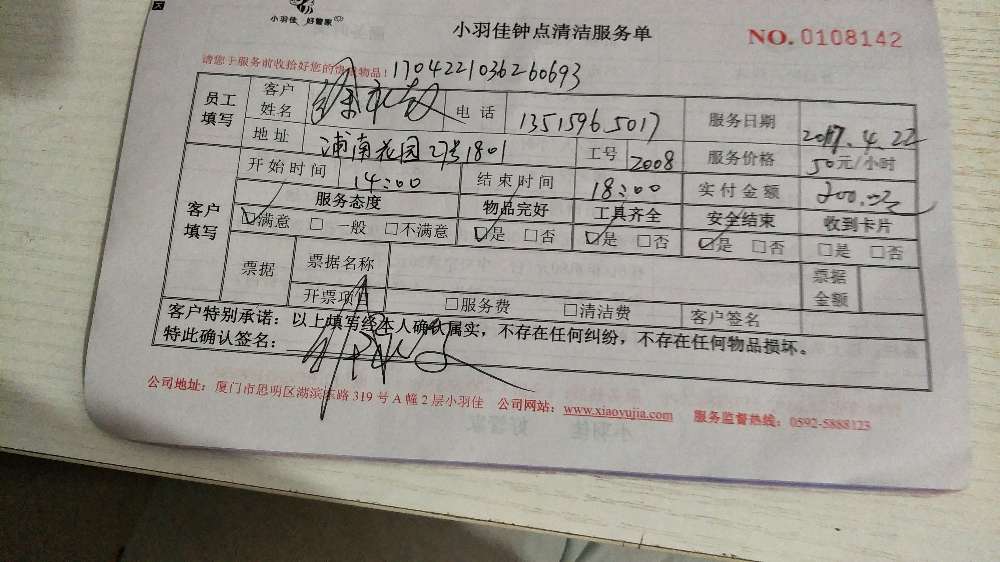 小羽佳 好管家
小羽佳钟点清洁服务单
NO. 0108142
请您于服务前收拾好您的贵重物品！1704221036260693
员工填写 客户姓名 电话 13515965017 服务日期 2017.4.22
地址 浦南花园27号1801 工号 2008 服务价格 50元/小时
客户填写 开始时间 14:00 结束时间 18:00 实付金额 200.0元
服务态度 物品完好 工具齐全 安全结束 收到卡片
☑满意 □一般 □不满意 ☑是 □否 ☑是 □否 ☑是 □否 □是 □否
票据 票据名称 票据金额
开票项目 □服务费 □清洁费 客户签名
客户特别承诺：以上填写经本人确认属实，不存在任何纠纷，不存在任何物品损坏。
特此确认签名：
公司地址：厦门市思明区湖滨东路319号A幢2层小羽佳 公司网站：www.xiaoyujia.com 服务监督热线：0592-5888123